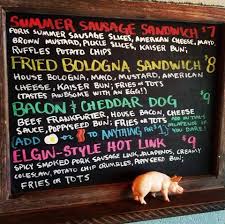 SUMMER SAUSAGE SANDWICH $7
PORK SUMMER SAUSAGE SLICES, AMERICAN CHEESE, MAYO,
BROWN MUSTARD, PICKLE SLICES, KAISER BUN;
RUFFLES POTATO CHIPS
FRIED BOLOGNA SANDWICH $8
HOUSE BOLOGNA, MAYO, MUSTARD, AMERICAN
CHEESE, KAISER BUN; FRIES OR TOTS
(TASTES AWESOME WITH AN EGG!!)
BACON & CHEDDAR DOG $9
BEEF FRANKFURTER, HOUSE BACON, CHEESE
SAUCE, POPPYSEED BUN; FRIES OR TOTS
(ADD OR TO ANYTHING FOR $1)
ADD
IF YOU
DARE!
ELGIN-STYLE HOT LINK $9
SPICY SMOKED PORK SAUSAGE LINK, JALAPENOS, CREAMY
COLESLAW, POTATO CHIP CRUMBLES, POPPYSEED BUN;
FRIES OR TOTS